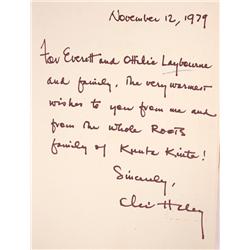 November 12, 1979
For Everett and Ottilie Laybourne
and family, the very warmest
wishes to you from me and
from the whole ROOTS
family of Kunta Kinte!
Sincerely,
Alex Haley